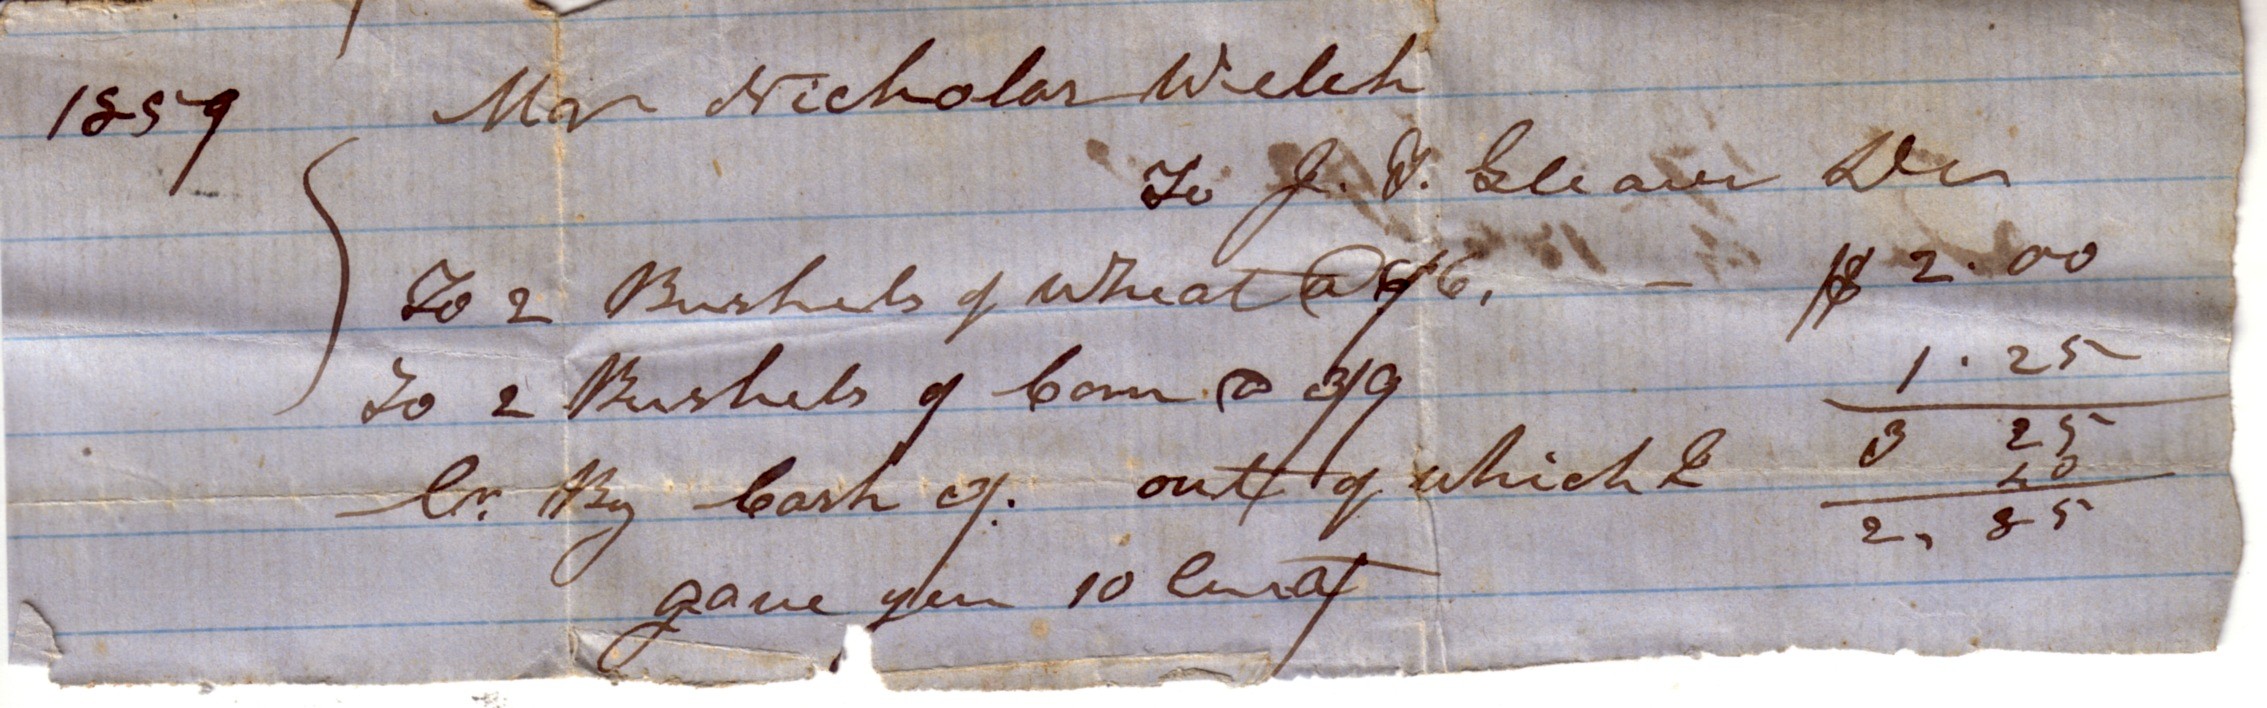 1859 Mr Nicholas Welch
To J. F. Gleaver Dr
To 2 Bushels of Wheat @ 6/ $ 2.00
To 2 Bushels of Corn @ 3/9 1.25
3 25
Cr. By Cash of. out of which I 40
2,85
gave you 10 Cents